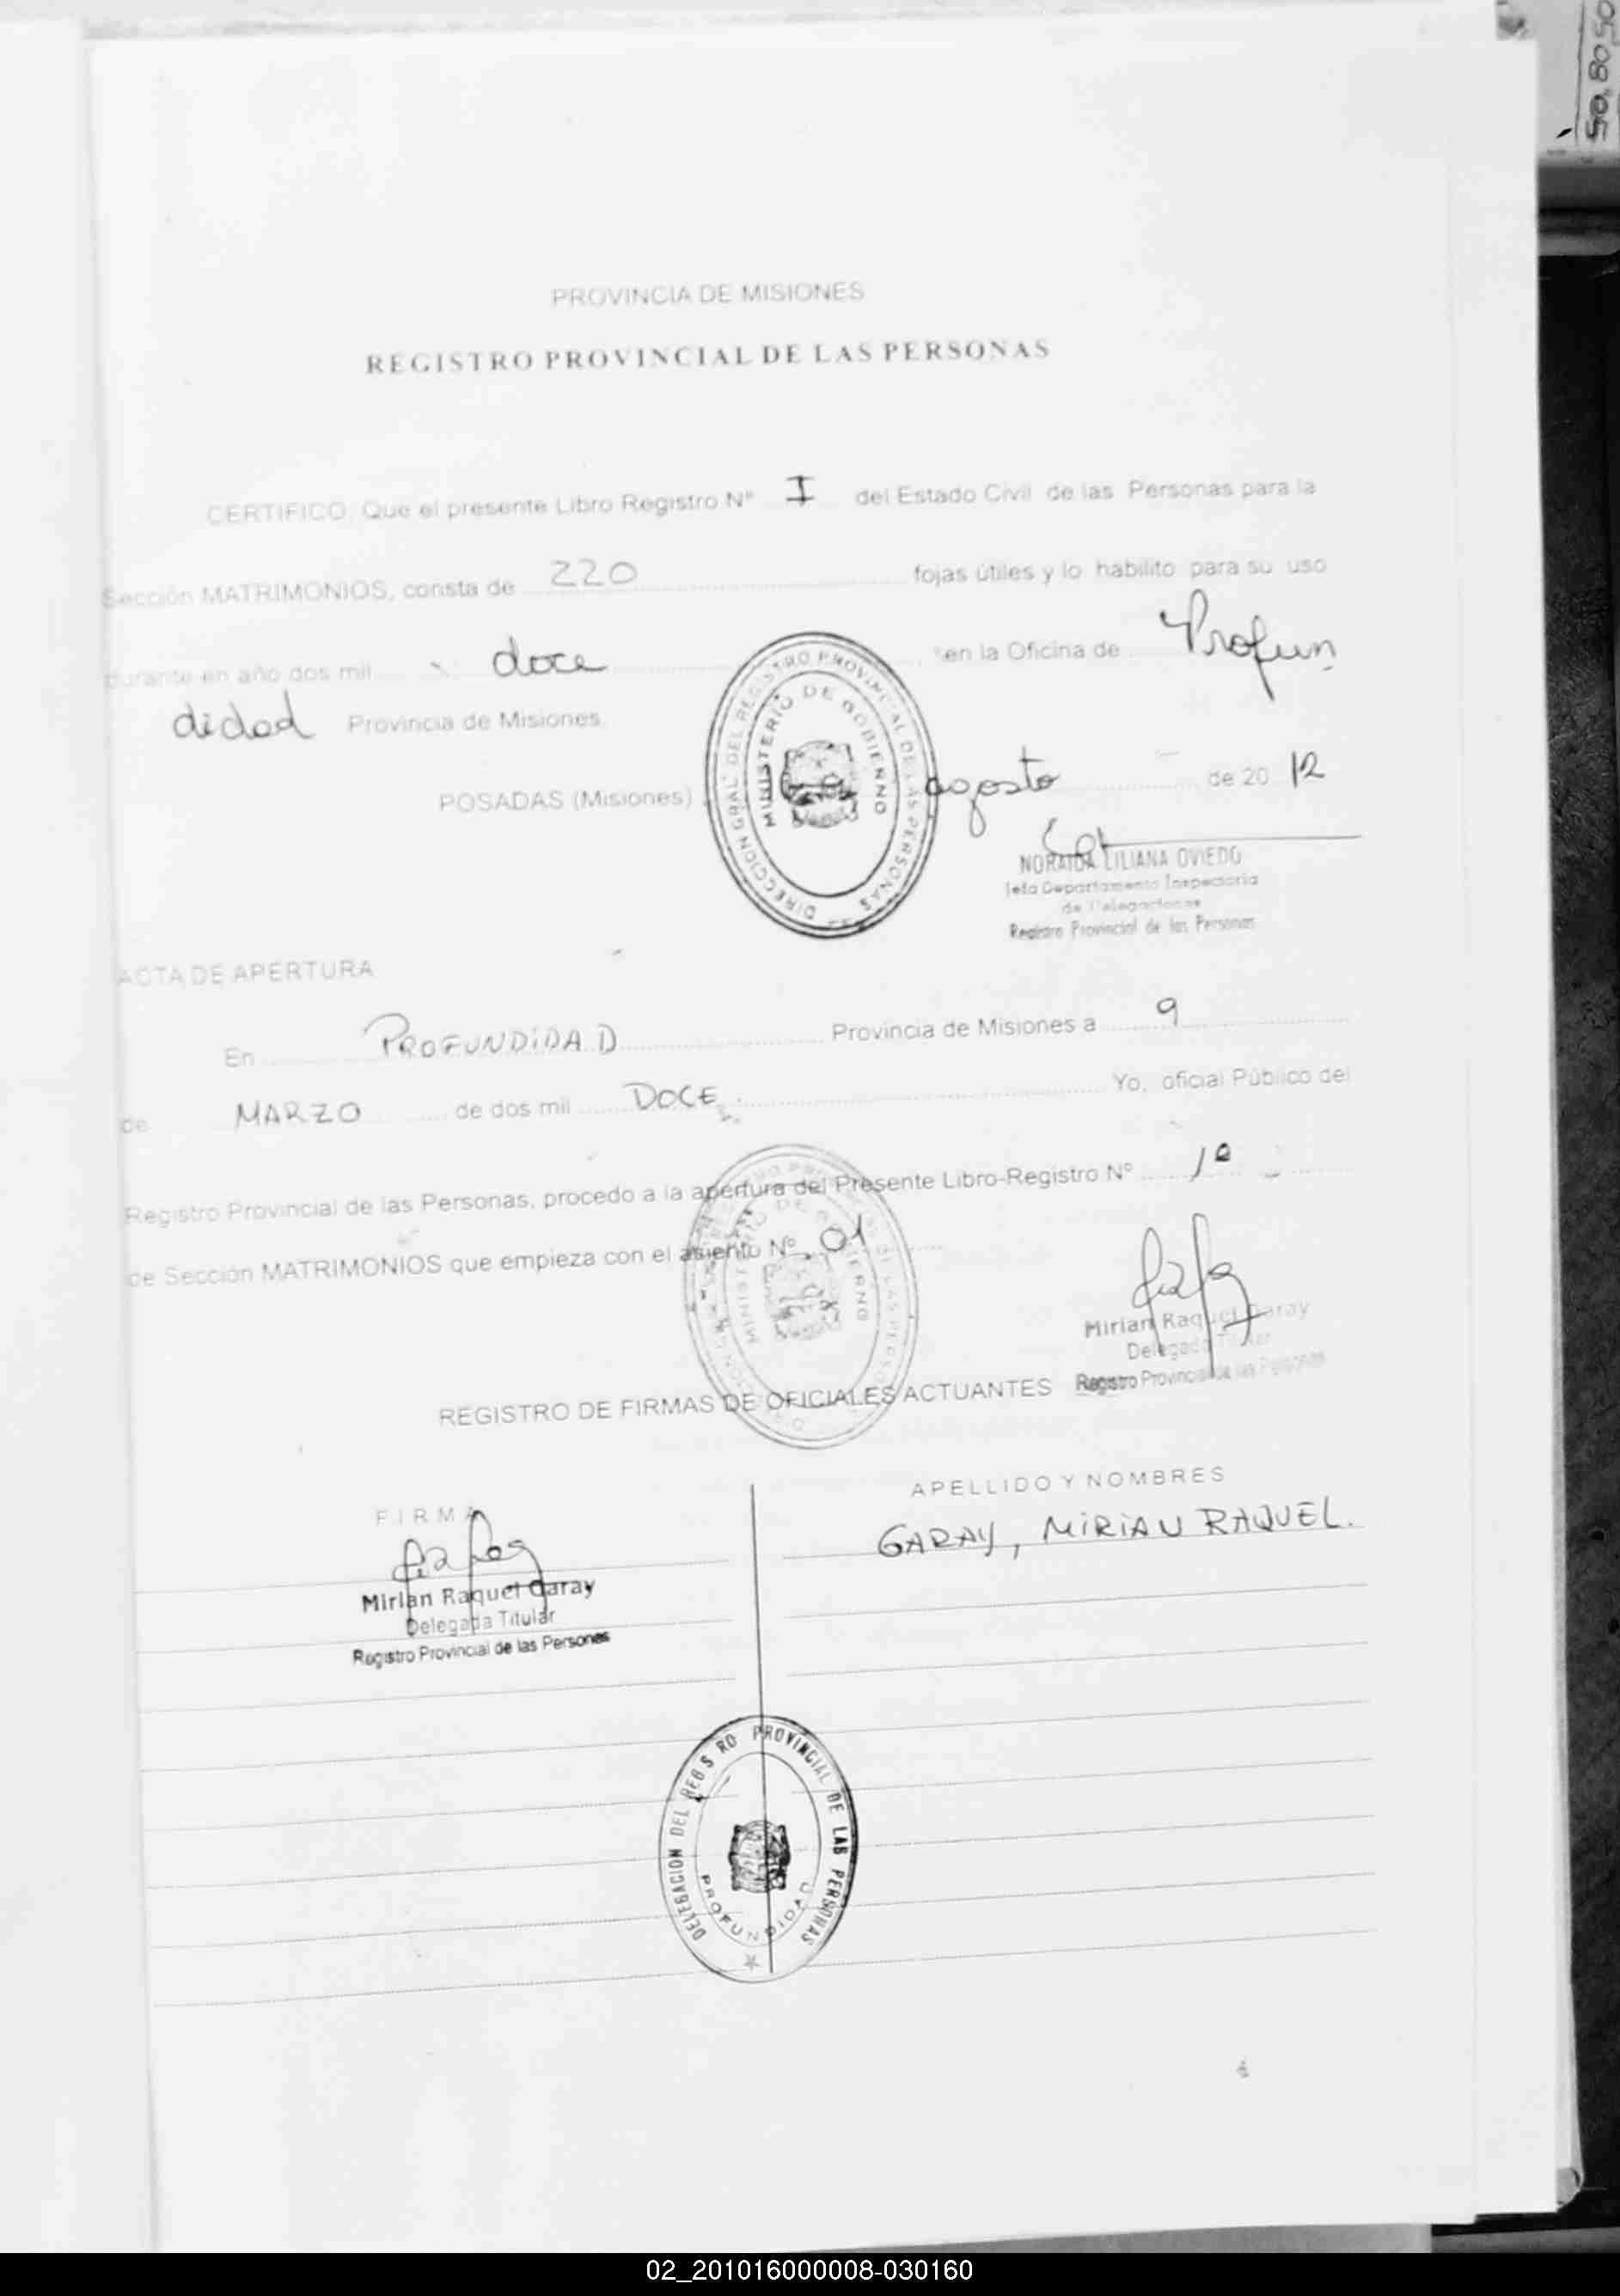 PROVINCIA DE MISIONES
REGISTRO PROVINCIAL DE LAS PERSONAS
CERTIFICO: Que el presente Libro Registro Nº I del Estado Civil de las Personas para la
Sección MATRIMONIOS, consta de 220 fojas útiles y lo habilito para su uso
durante en año dos mil doce en la Oficina de Profun
didad Provincia de Misiones.
POSADAS (Misiones) agosto de 20 12
DIRECCION GRAL DEL REGISTRO PROVINCIAL DE LAS PERSONAS
MINISTERIO DE GOBIERNO
NORAIDA LILIANA OVIEDO
Jefa Departamento Inspectoria
de Delegaciones
Registro Provincial de las Personas
ACTA DE APERTURA
En PROFUNDIDAD Provincia de Misiones a 9
de MARZO de dos mil DOCE Yo, oficial Público del
Registro Provincial de las Personas, procedo a la apertura del Presente Libro-Registro Nº 1º
de Sección MATRIMONIOS que empieza con el asiento Nº 01
MINISTERIO DE GOBIERNO
Mirian Raquel Garay
Delegada Titular
Registro Provincial de las Personas
REGISTRO DE FIRMAS DE OFICIALES ACTUANTES
FIRMA APELLIDO Y NOMBRES
GARAY, MIRIAN RAQUEL.
Mirian Raquel Garay
Delegada Titular
Registro Provincial de las Personas
DELEGACION DEL REGISTRO PROVINCIAL DE LAS PERSONAS
PROFUNDIDAD
02_201016000008-030160